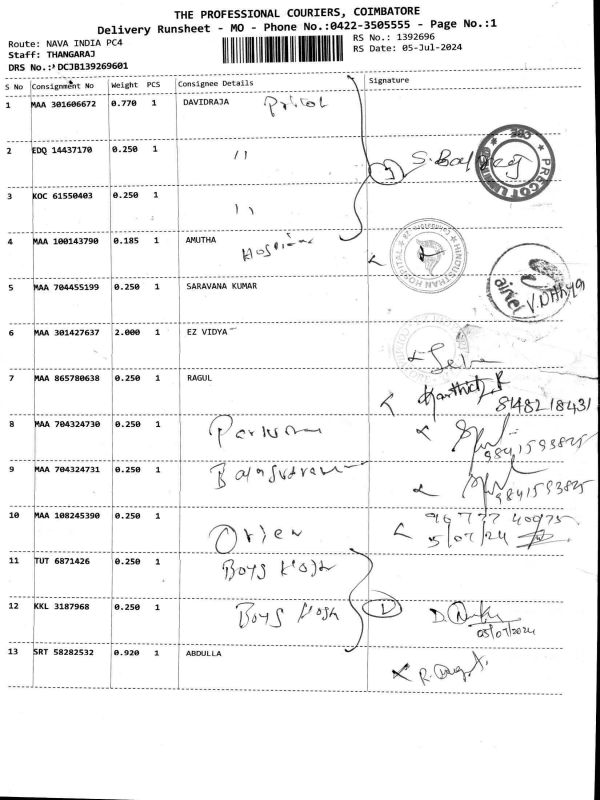 THE PROFESSIONAL COURIERS, COIMBATORE
Delivery Runsheet - MO - Phone No.:0422-3505555 - Page No.:1
Route: NAVA INDIA PC4
RS No.: 1392696
Staff: THANGARAJ
RS Date: 05-Jul-2024
DRS No.: DCJB139269601
S No Consignment No Weight PCS Consignee Details Signature
1 MAA 301606672 0.770 1 DAVIDRAJA
2 EDQ 14437170 0.250 1 11
3 KOC 61550403 0.250 1 11
4 MAA 100143790 0.185 1 AMUTHA
HINDUSTHAN HOSPITAL
5 MAA 704455199 0.250 1 SARAVANA KUMAR
airtel V. Dhivya
6 MAA 301427637 2.000 1 EZ VIDYA
7 MAA 865780638 0.250 1 RAGUL Karthick.R
8148218431
8 MAA 704324730 0.250 1
9841593825
9 MAA 704324731 0.250 1
9841593825
10 MAA 108245390 0.250 1
96777 40975
5/07/24
11 TUT 6871426 0.250 1 Boys
12 KKL 3187968 0.250 1 Boys
05/07/2024
13 SRT 58282532 0.920 1 ABDULLA